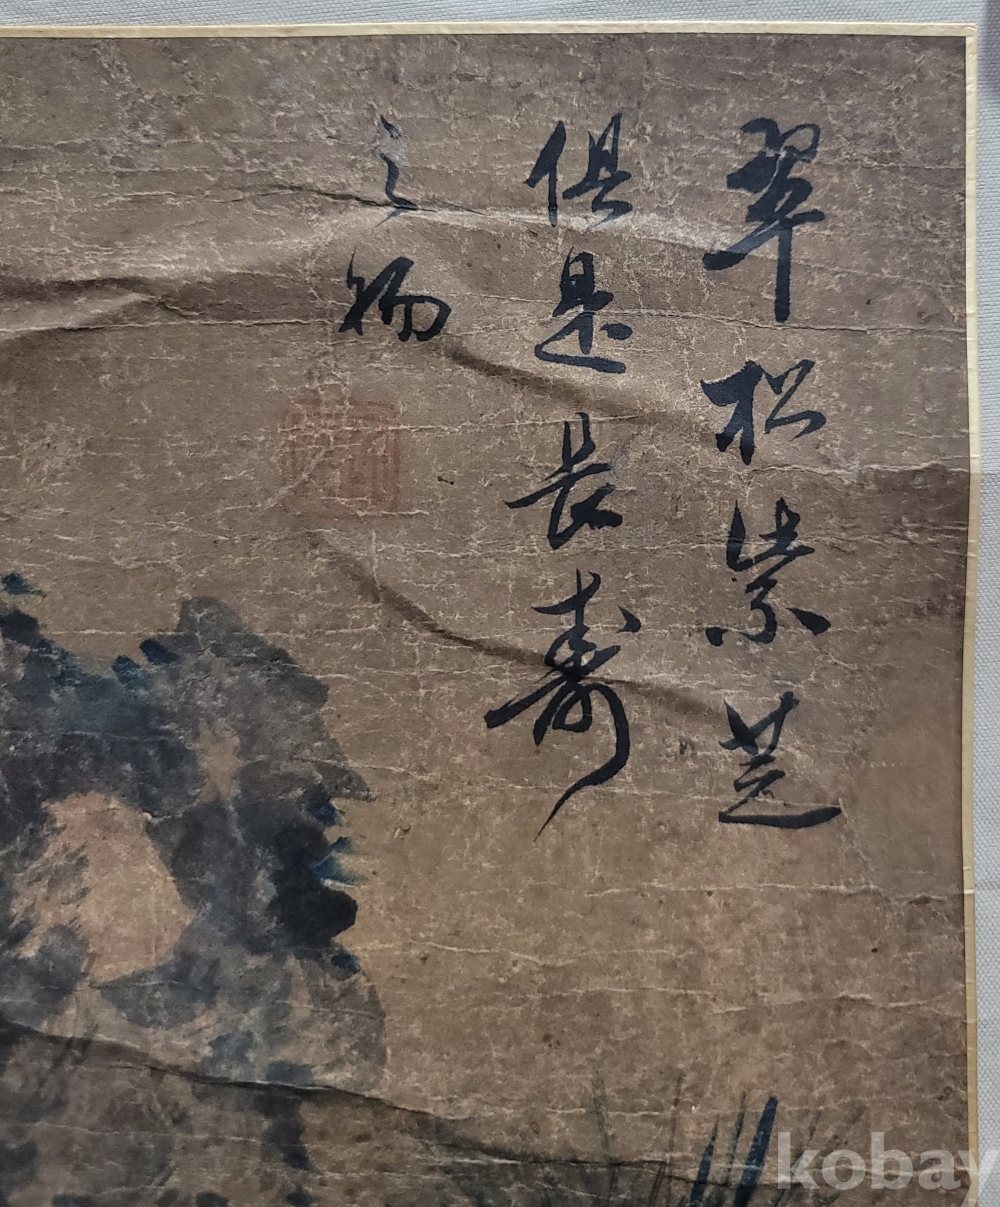 翠松紫芝
俱是長壽
之物
kobay